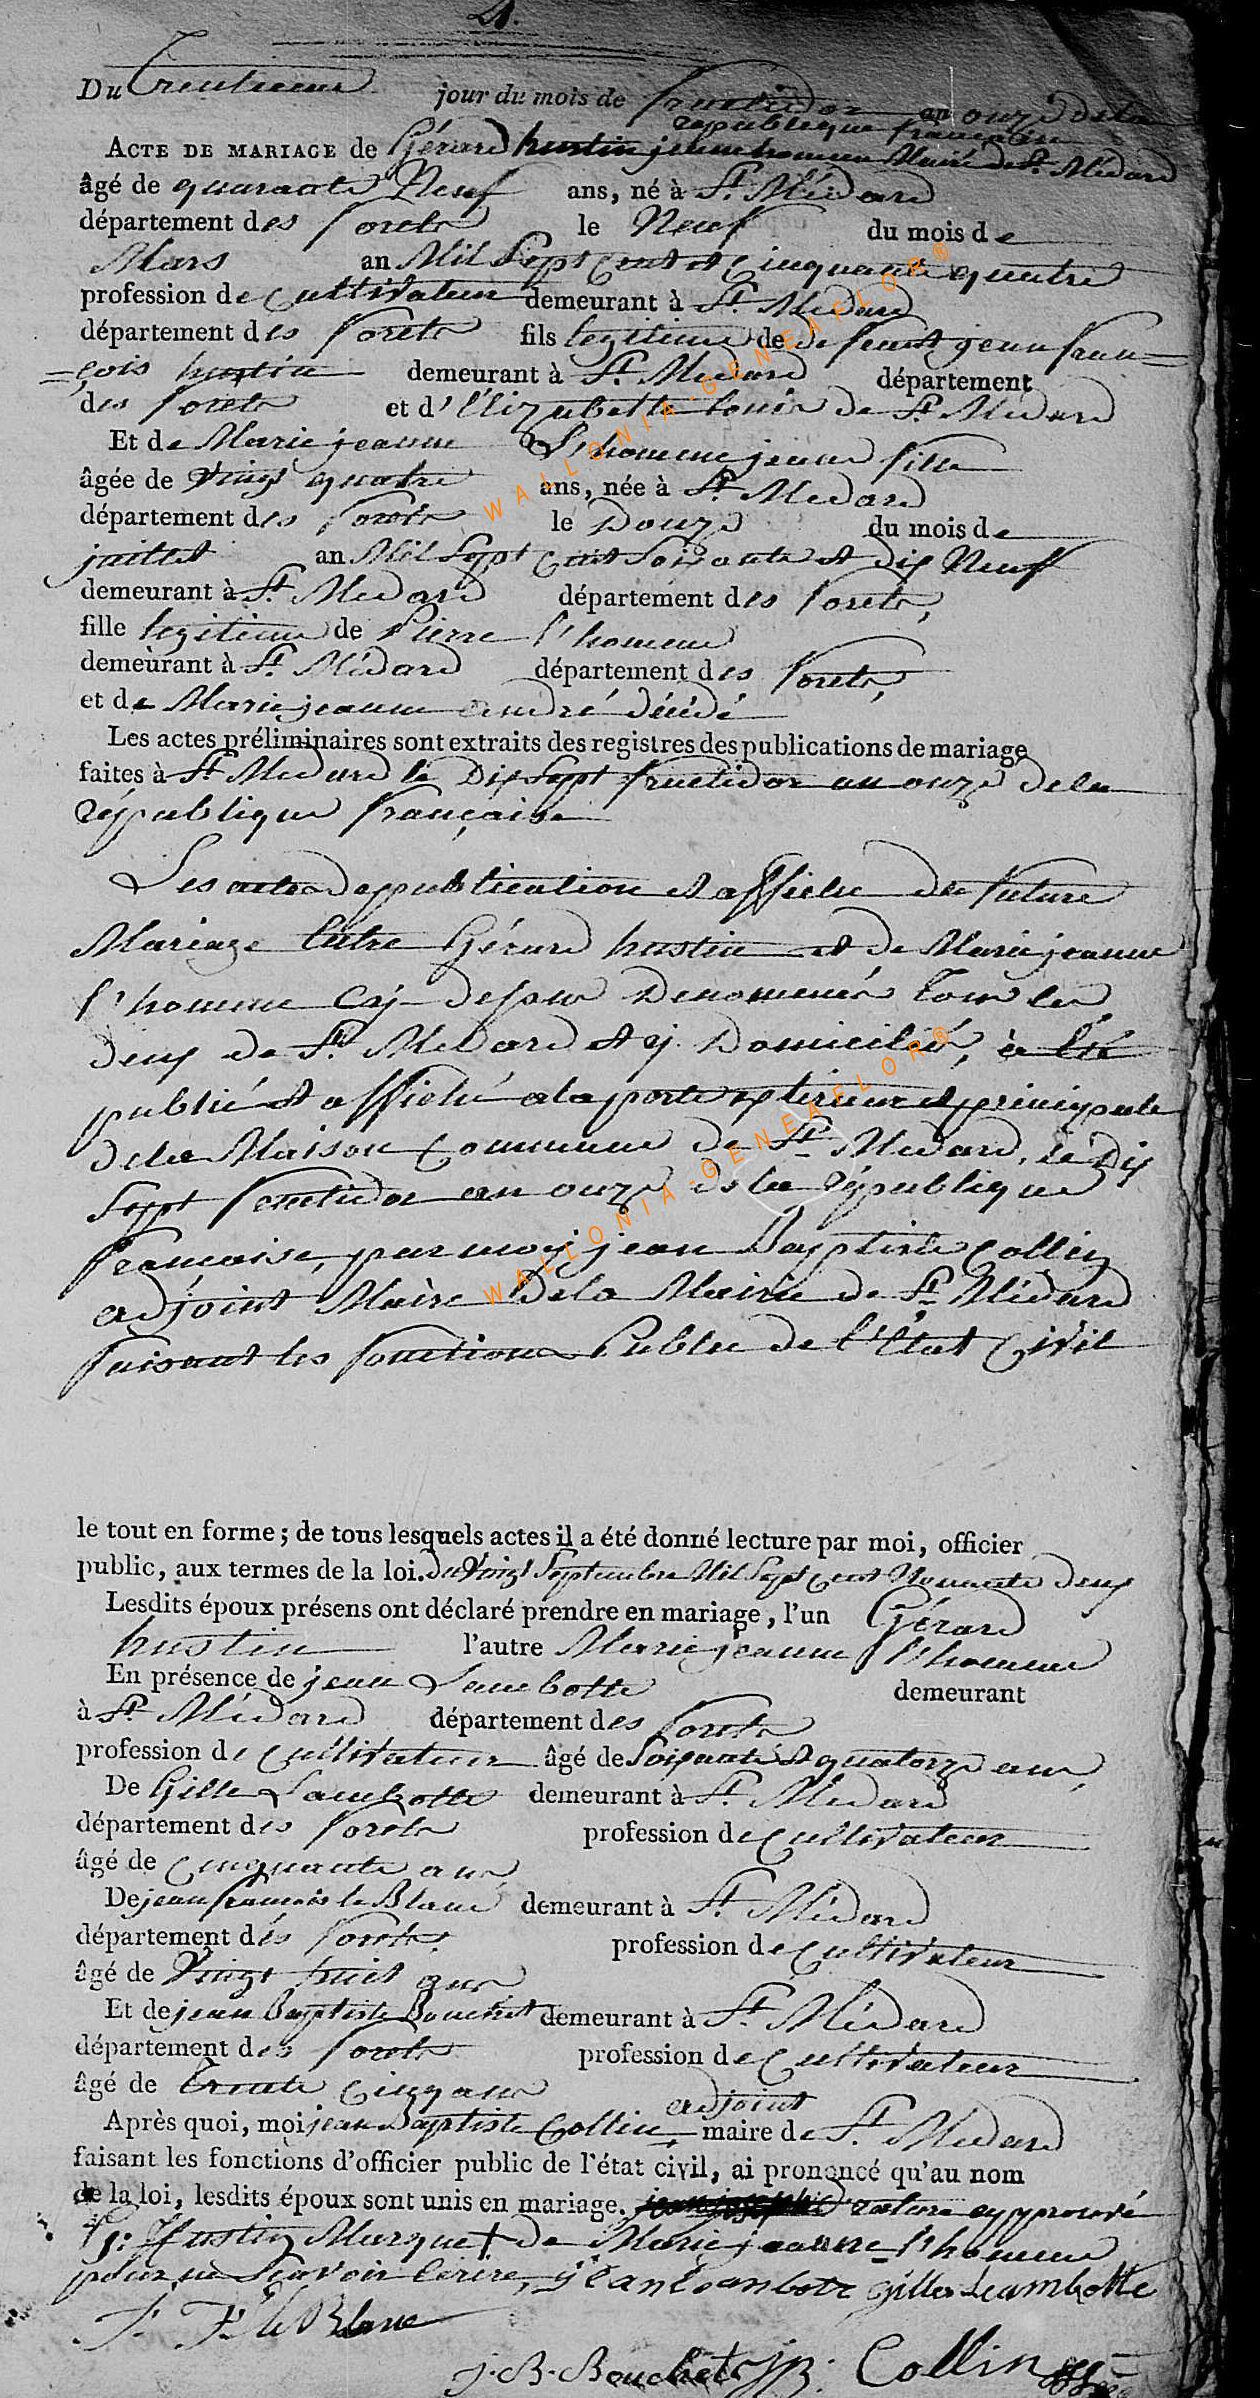 4.
Du Trentieme jour du mois de fructidor an onze dela
republique francaise
ACTE DE MARIAGE de Gérard hustin jeune homme Maire de St. Médard
âgé de quarante Neuf ans, né à St. Médard
département des forets le Neuf du mois de
Mars an Mil Sept Cent et Cinquante quatre
profession de Cultivateur demeurant à St. Médard
département des forets fils legitime de defeunt jean fran=
=çois hustin demeurant à St. Médard département
des forets et d'Élizabette louis de St. Médard
Et de Marie jeanne L'homme jeune fille
âgée de vingt quatre ans, née à St. Médard
département des forets le Douze du mois de
juillet an Mil Sept Cent Soixante et dix Neuf
demeurant à St. Médard département des forets,
fille legitime de Pierre l'homme
demeurant à St. Médard département des forets,
et de Marie jeanne andré décédé
Les actes préliminaires sont extraits des registres des publications de mariage
faites à St. Médard le Dix Sept fructidor an onze dela
république française
Les actes de publication et affiche de future
Mariage Entre Gérard hustin et de Marie jeanne
l'homme Cy-dessus Denommés tous les
deux de St. Médard et y Domicilié, a été
publié et affiché a la porte exterieur et principale
dela Maison Commune de St. Médard, le Dix
Sept fructidor an onze dela république
francaise, par moy jean Baptiste Collin
adjoint Maire Dela Mairie de St. Médard
faisant les fonctions Public de l'État Civil
le tout en forme ; de tous lesquels actes il a été donné lecture par moi, officier
public, aux termes de la loi. du Vingt Septembre Mil Sept Cent Nonante deux
Lesdits époux présens ont déclaré prendre en mariage, l'un Gérard
hustin l'autre Marie jeanne l'homme
En présence de jean Lambotte demeurant
à St. Médard département des forets
profession de Cultivateur âgé de Soixante et quatorze ans,
De Gille Lambotte demeurant à St. Médard
département des forets profession de Cultivateur
âgé de Cinquante ans
De jean francois le Blanc demeurant à St. Médard
département des forets. profession de Cultivateur
âgé de Vingt huit ans
Et de jean Baptiste Bouchet demeurant à St. Médard
département des forets profession de Cultivateur
âgé de trente Cinq ans
adjoint
Après quoi, moi jean Baptiste Collin, maire de St. Médard
faisant les fonctions d'officier public de l'état civil, ai prononcé qu'au nom
de la loi, lesdits époux sont unis en mariage. rature approuvé
g: Hustin Marque + de Marie jeanne l'homme
pour ne Scavoir Ecrire, jean Lambote gilles Lambotte
J. F. le Blanc
J. B. Bouchet JB: Collin
WALLONIA-GENEAFLOR®
WALLONIA-GENEAFLOR®